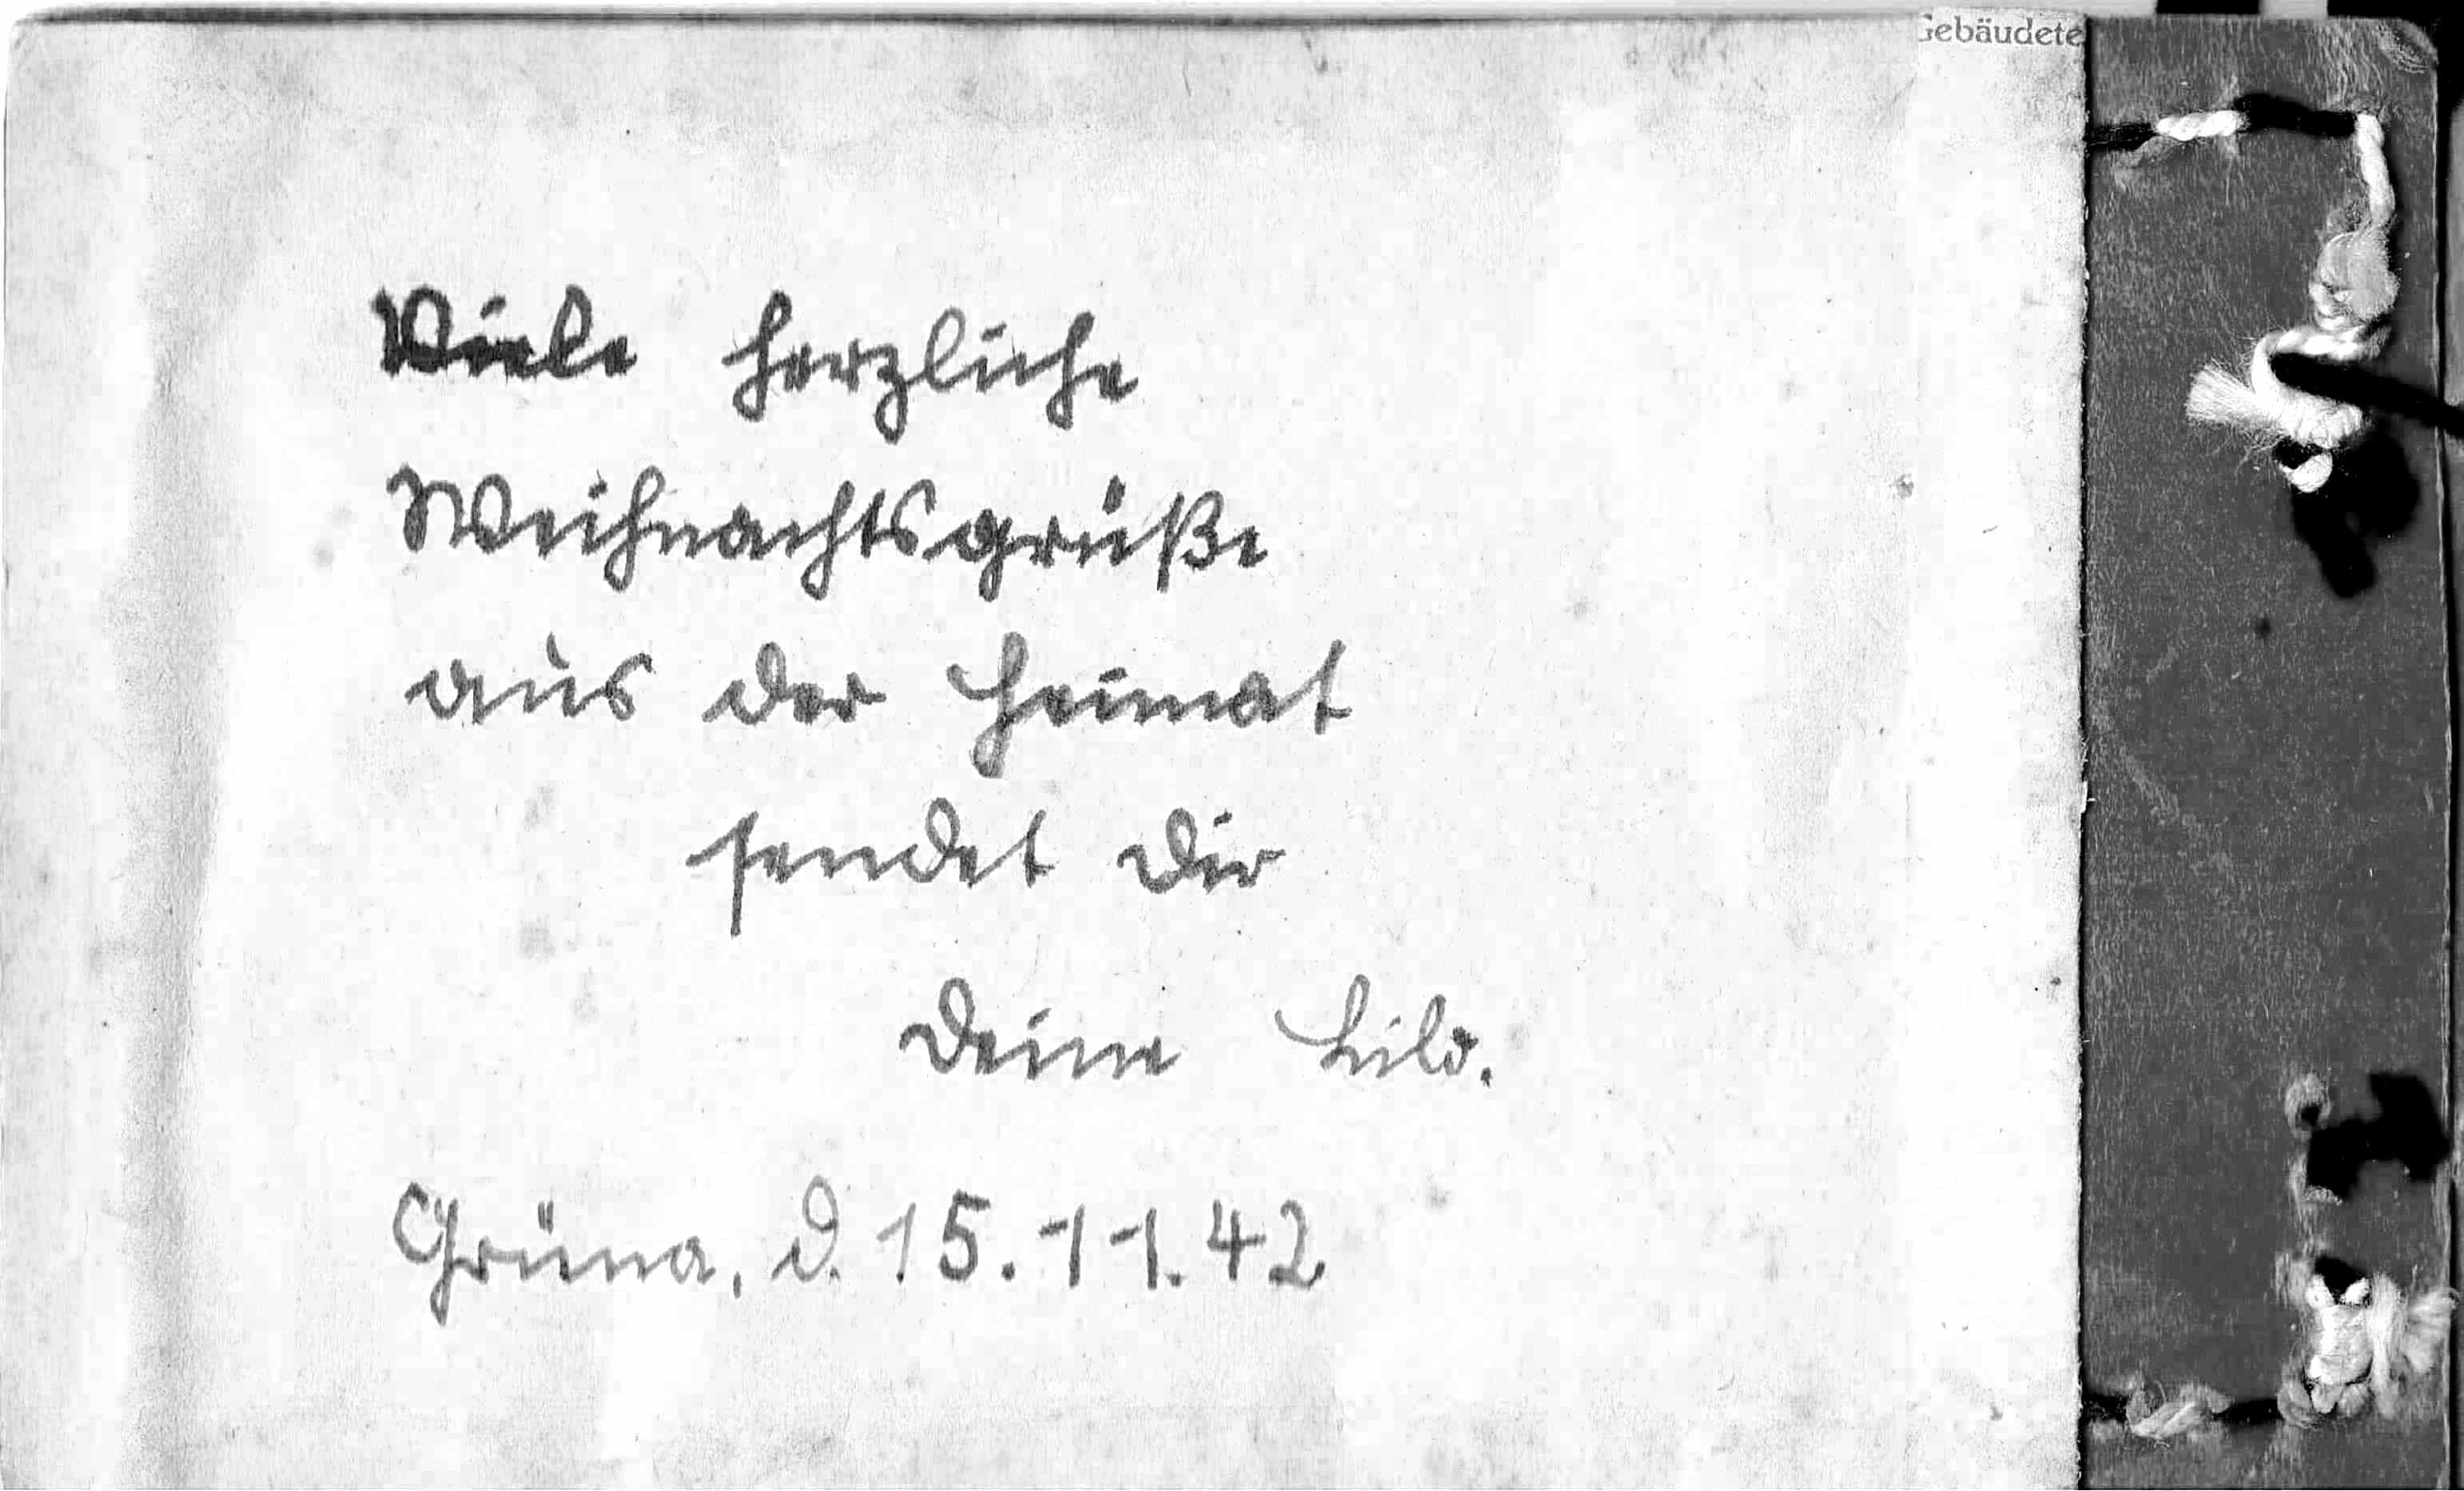 Gebäudete
Viele herzliche
Weihnachtsgrüße
aus der Heimat
sendet Dir
Deine Lilo.
Grüna, d. 15.11.42